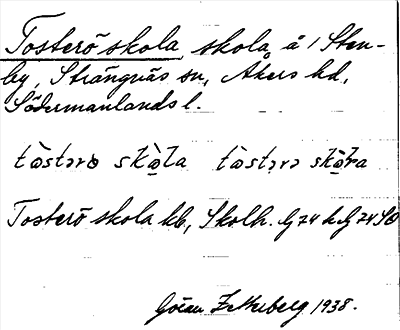 Tosterö skola, skola å 1 Sten-
by, Strängnäs sn, Åkers hd,
Södermanlands l.
tòstərɵ skò̱la tòstərə skò̱ra
Tosterö skola kb, Skolh. G74 h. G74SO
Göran Zetterberg 1938.